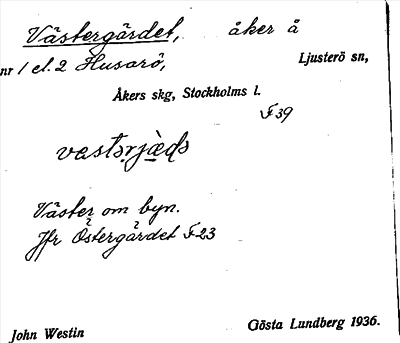 Västergärdet, åker å
nr 1 el. 2 Husarö, Ljusterö sn,
Åkers skg, Stockholms l.
F39
Väster om byn.
Jfr Östergärdet F23
John Westin Gösta Lundberg 1936.